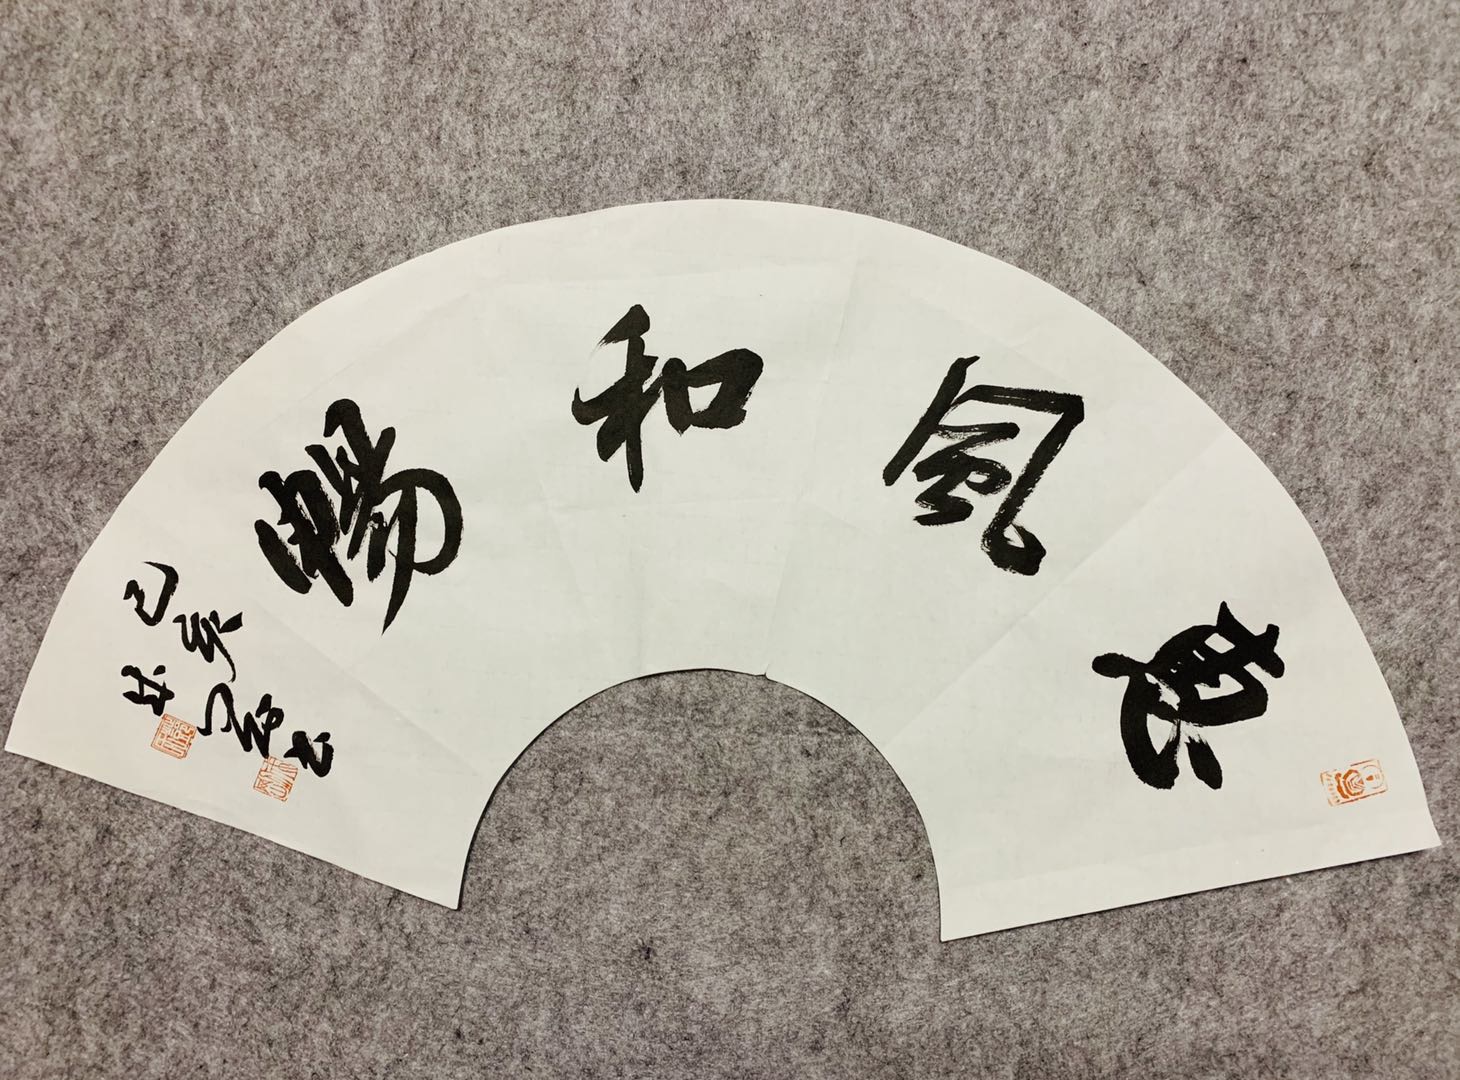 惠風和暢
己亥
書